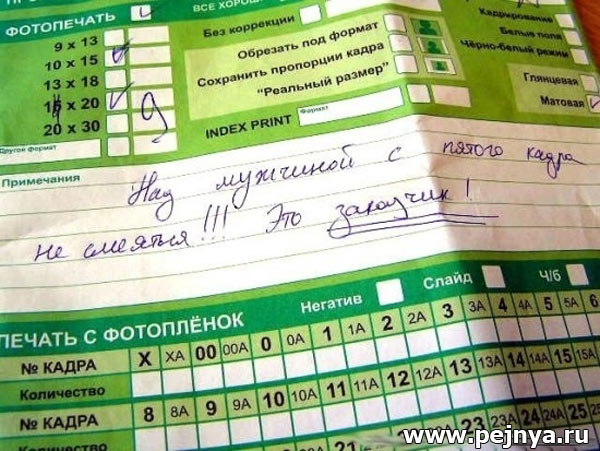 ВСЕ ХОРОШ
ФОТОПЕЧАТЬ
Без коррекции
Кадрирование
9 x 13
Обрезать под формат
Белые поля
10 x 15
Сохранить пропорции кадра
Чёрно-белый режим
13 x 18
"Реальный размер"
Глянцевая
x 20
9
Матовая
20 x 30
INDEX PRINT
Формат
Другой формат
Примечания
Над мужчиной с пятого кадра
не смеяться!!! Это заказчик!
Негатив Слайд Ч/б
ПЕЧАТЬ С ФОТОПЛЁНОК
№ КАДРА X XA 00 00A 0 0A 1 1A 2 2A 3 3A 4 4A 5 5A 6
Количество
№ КАДРА 8 8A 9 9A 10 10A 11 11A 12 12A 13 13A 14 14A 15 15A
Количество
21 23 23A 24 24A 25 25
www.pejnya.ru